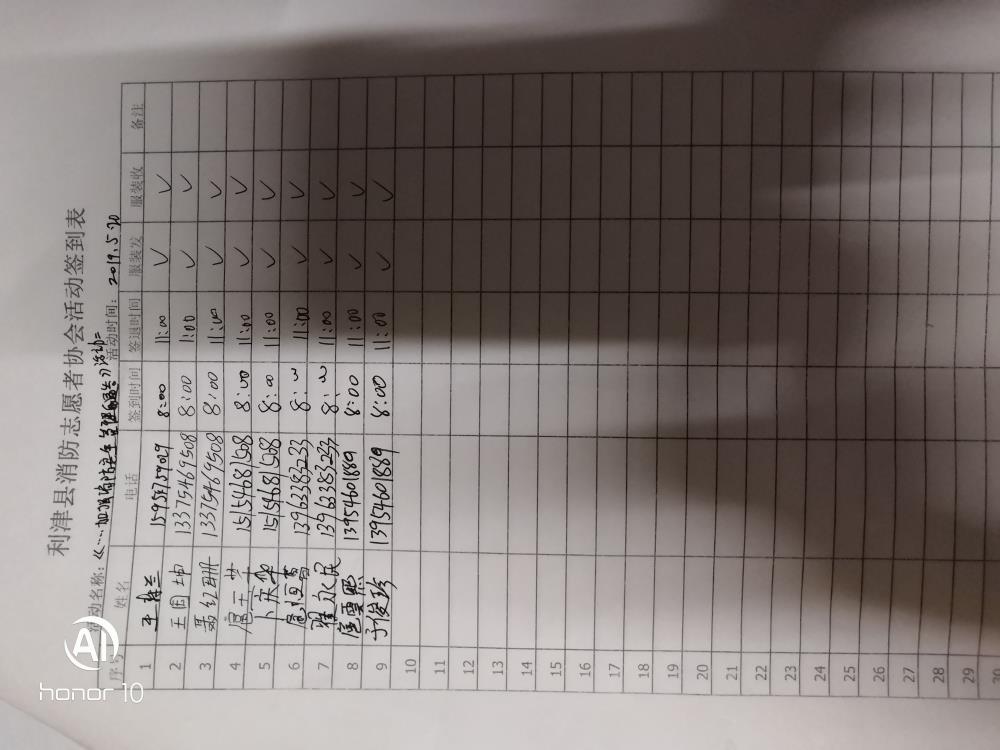 利津县消防志愿者协会活动签到表
活动名称: 加强消防安全 活动 活动时间: 2019.5.20
序号 姓名 电话 签到时间 签退时间 服装发 服装收 备注
1 王 兰 15953759029 8:00 11:00 ✓ ✓
2 王国坤 13375469508 8:00 1:00 ✓ ✓
3 聂红珊 13375469508 8:00 11:00 ✓ ✓
4 扈玉芬 15154681508 8:00 11:00 ✓ ✓
5 卜庆华 15154681508 8:00 11:00 ✓ ✓
6 扈 13963383233 8:00 11:00 ✓ ✓
7 崔永民 13963383233 8:00 11:00 ✓ ✓
8 扈 13954601889 8:00 11:00 ✓ ✓
9 于俊珍 13954601889 8:00 11:00 ✓ ✓
10
11
12
13
14
15
16
17
18
19
20
21
22
23
24
25
26
27
28
29
30
AI
honor 10